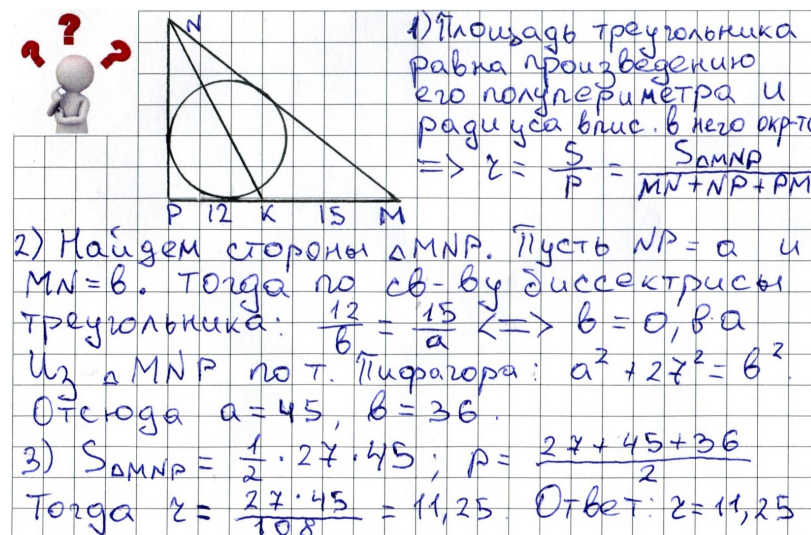 ? ? ?
N
P 12 K 15 M
1) Площадь треугольника
равна произведению
его полупериметра и
радиуса впис. в него
=> r = S/P = S△MNP/MN+NP+PM
2) Найдем стороны △MNP. Пусть NP = a и
MN = b. Тогда по св-ву биссектрисы
треугольника: 12/b = 15/a <=> b = 0,8·a
Из △MNP по т. Пифагора: a² + 27² = b².
Отсюда a = 45, b = 36.
3) S△MNP = 1/2 · 27 · 45; p = 27+45+36/2
Тогда r = 27·45/108 = 11,25. Ответ: r = 11,25